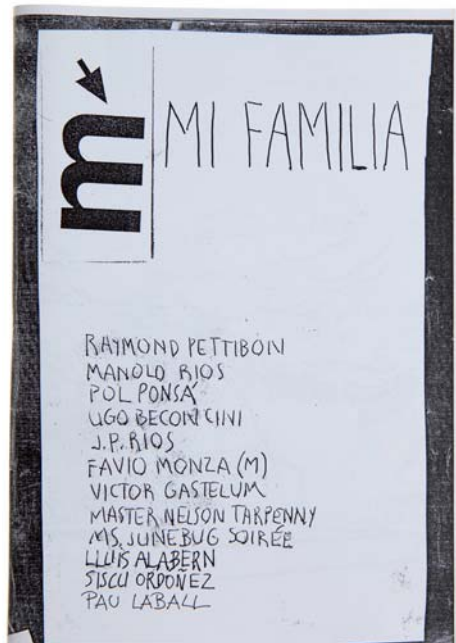 m
MI FAMILIA
RAYMOND PETTIBON
MANOLO RIOS
POL PONSÁ
UGO BECONCINI
J.P. RIOS
FAVIO MONZA (M)
VICTOR GASTELUM
MASTER NELSON TARPENNY
MS. JUNEBUG SOIRÉE
LLUIS ALABERN
SISCU ORDOÑEZ
PAU LABALL